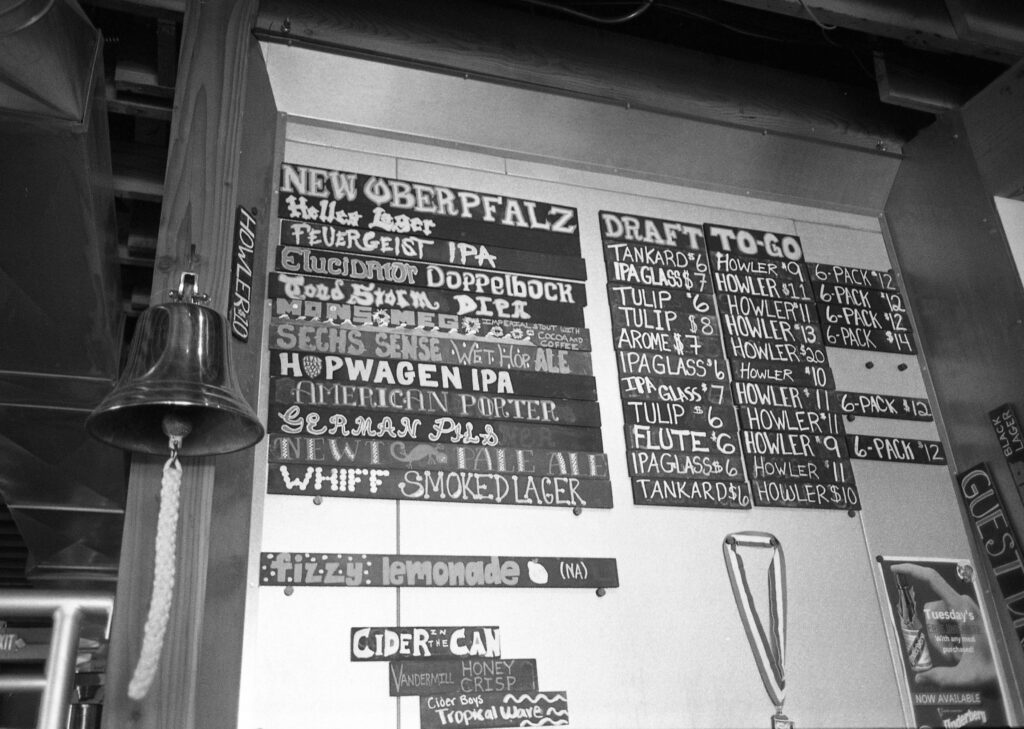 NEW OBERPFALZ
Helles Lager
FEUERGEIST IPA
Elucidator Doppelbock
Toad Storm DIPA
MANSOMEG
IMPERIAL STOUT WITH
COCOA AND
COFFEE
SECHS SENSE WET HOP ALE
HOPWAGEN IPA
AMERICAN PORTER
GERMAN PILS
NEWT PALE ALE
WHIFF SMOKED LAGER
DRAFT TO-GO
TANKARD $6 HOWLER $9 6-PACK $12
IPA GLASS $7 HOWLER $11 6-PACK $12
TULIP $6 HOWLER $11 6-PACK $12
TULIP $8 HOWLER $13 6-PACK $14
AROME $7 HOWLER $20
IPA GLASS $6 HOWLER $10
IPA GLASS $7 HOWLER $11 6-PACK $12
TULIP $6 HOWLER $11
FLUTE $6 HOWLER $9 6-PACK $12
IPA GLASS $6 HOWLER $11
TANKARD $6 HOWLER $10
HOWLER $10
fizzy lemonade (NA)
CIDER IN THE CAN
VANDERMILL HONEY CRISP
Cider Boys
Tropical Wave
BLACK
LAGER
GUEST
Tuesday's
With any meal
purchased!
NOW AVAILABLE
Tinderberg